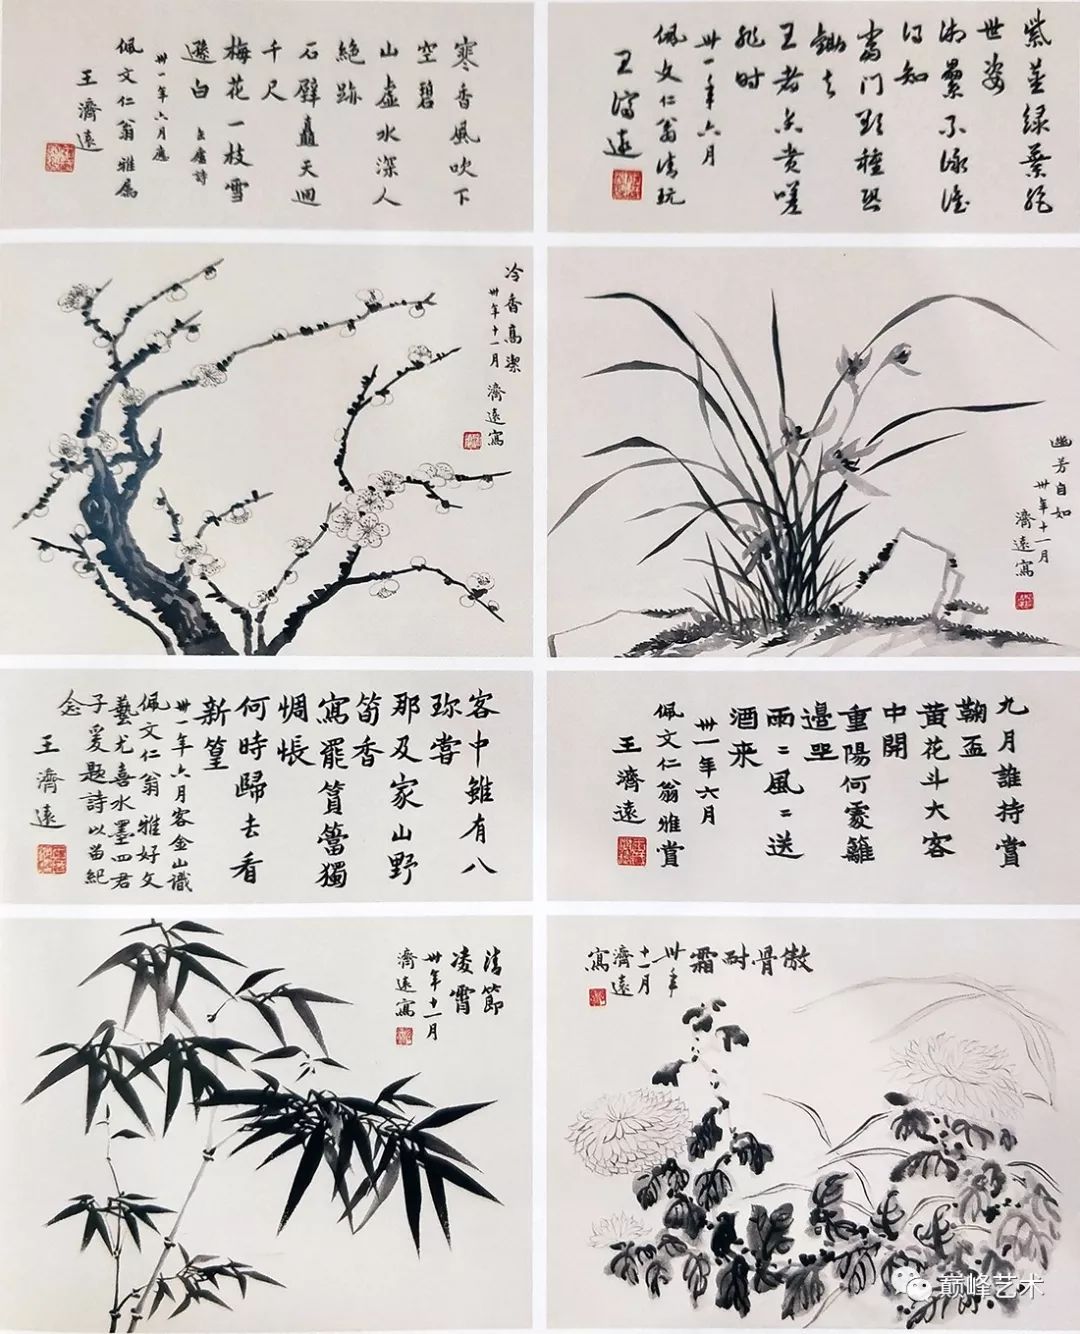 紫莖綠葉絕
世姿
湘纍不詠誰
得知
當門欲種恐
鋤去
王者亦貴嗟
非時
卅一年六月
佩文仁翁清玩
王濟遠
寒香風吹下
空碧
山虛水深人
絕跡
石壁矗天迴
千尺
梅花一枝雪
遜白
卅一年六月應
佩文仁翁雅屬
王濟遠
幽芳自如
卅年十一月
濟遠寫
冷香高潔
卅年十一月
濟遠寫
九月誰持賞
鞠盃
黃花斗大客
中開
重陽何處籬
邊坐
雨二風二送
酒来
卅一年六月
佩文仁翁雅賞
王濟遠
客中雖有八
珍嘗
那及家山野
筍香
寫罷篔簹獨
惆悵
何時歸去看
新篁
卅一年六月客金山識
佩文仁翁雅好文
藝尤喜水墨四君
子爰題詩以留紀
念
王濟遠
傲骨耐霜
卅年
十一月
濟遠
寫
清節
凌霄
卅年十一月
濟遠寫
巅峰艺术